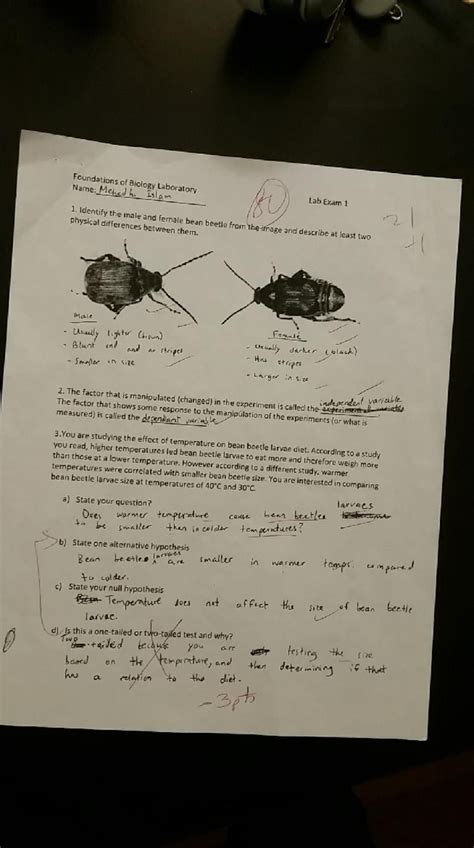 Foundations of Biology Laboratory
Name: Mehedhi Islam
Lab Exam 1
80
21
+1
1. Identify the male and female bean beetle from the image and describe at least two
physical differences between them.
Male
- Usually lighter (brown)
- Blunt end and no stripes
- Smaller in size
Female
- usually darker (black)
- Has stripes
- Larger in size
2. The factor that is manipulated (changed) in the experiment is called the independent variable
The factor that shows some response to the manipulation of the experiments (or what is
measured) is called the dependant variable
3.You are studying the effect of temperature on bean beetle larvae diet. According to a study
you read, higher temperatures led bean beetle larvae to eat more and therefore weigh more
than those at a lower temperature. However according to a different study, warmer
temperatures were correlated with smaller bean beetle size. You are interested in comparing
bean beetle larvae size at temperatures of 40°C and 30°C.
a) State your question?
Does warmer temperature cause bean beetles larvaes
to be smaller then in colder temperatures?
b) State one alternative hypothesis
Bean beetles larvaes are smaller in warmer temps. compared
to colder.
c) State your null hypothesis
Temperature does not affect the size of bean beetle
larvae.
d) Is this a one-tailed or two-tailed test and why?
Two-tailed because you are testing the size
based on the temperature, and then determining if that
has a relation to the diet.
-3pts